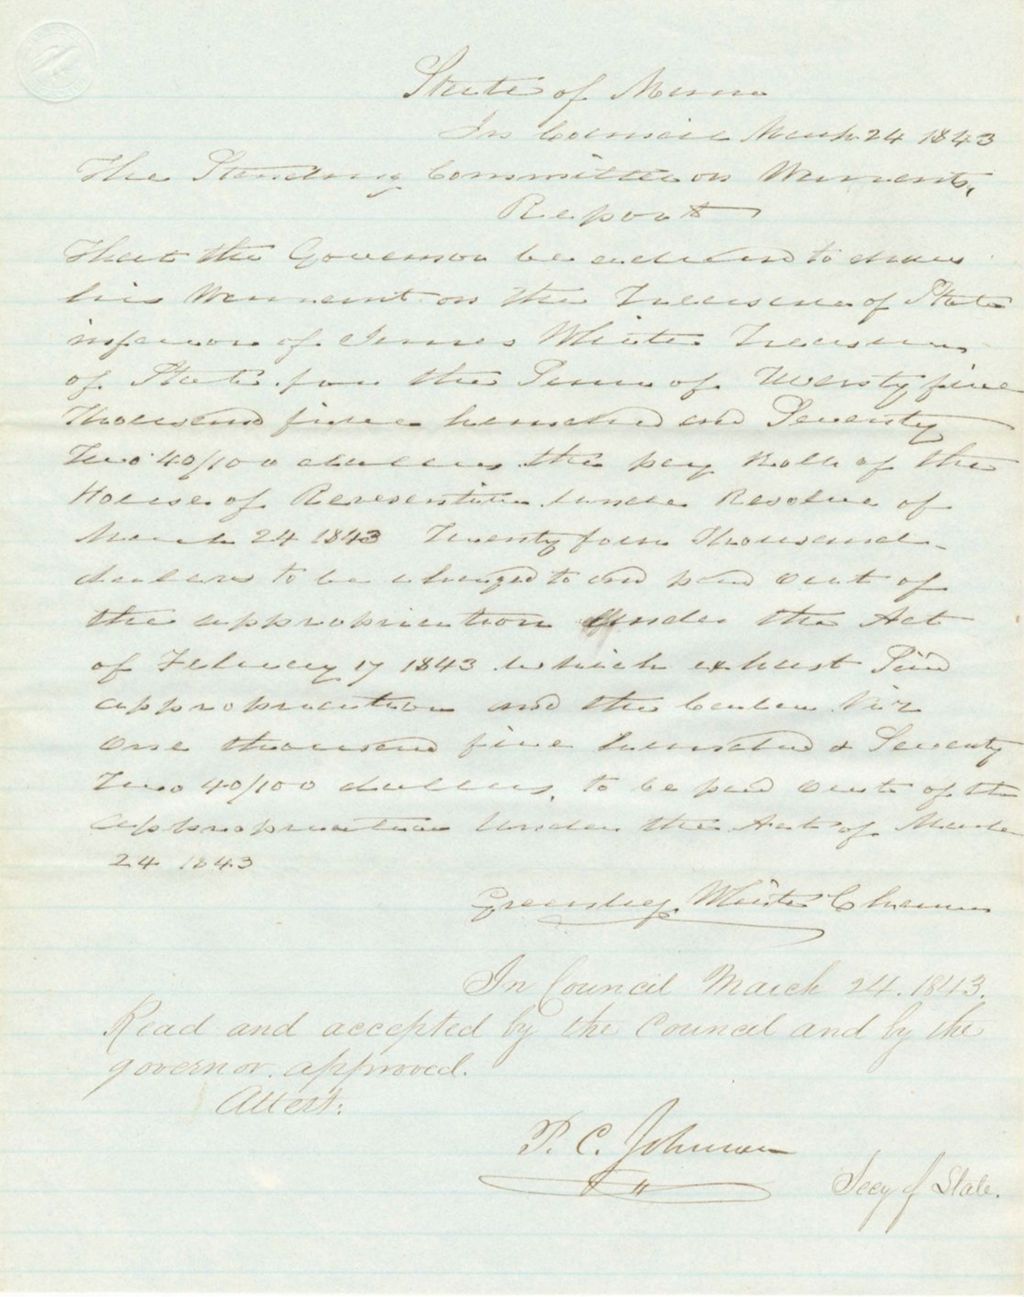 State of Maine
In Council March 24 1843
The Standing Committee on Warrants,
Report
That the Governor be advised to draw
his Warrant on the Treasurer of State
in favor of James White Treasurer
of State for the Sum of Twenty five
thousand five hundred and Seventy
Two 40/100 dollars the pay Roll of the
House of Representatives under Resolve of
March 24 1843 Twenty four thousand
dollars to be charged to and paid out of
the appropriation under the Act
of February 17 1843 which exhaust Said
appropriation and the balance Viz
One thousand five hundred & Seventy
Two 40/100 dollars, to be paid out of the
appropriation under the Act of March
24 1843
Greenlief White Chairman
In Council March 24. 1843.
Read and accepted by the Council and by the
governor approved.
Attest:
P. C. Johnson
Secy of State.